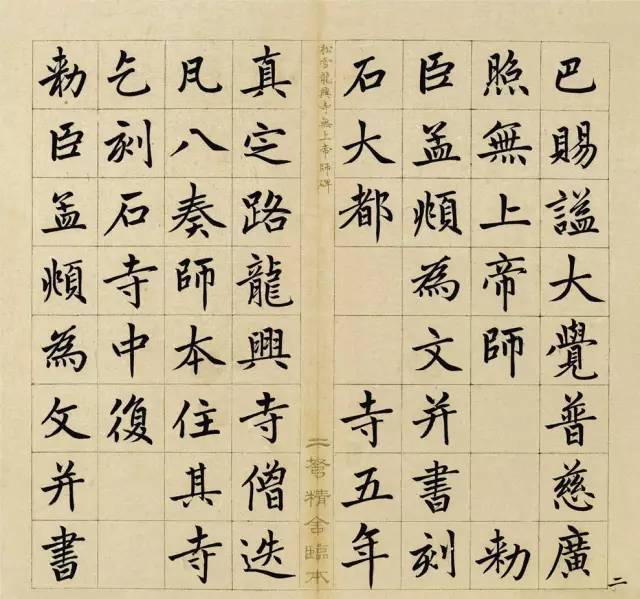 巴賜謚大覺普慈廣
照無上帝師 勅
臣孟頫為文并書刻
石大都 寺五年
二
松雪龍興寺無上帝師碑
二弩精舍臨本
真定路龍興寺僧迭
凡八奏師本住其寺
乞刻石寺中復
勅臣孟頫為文并書